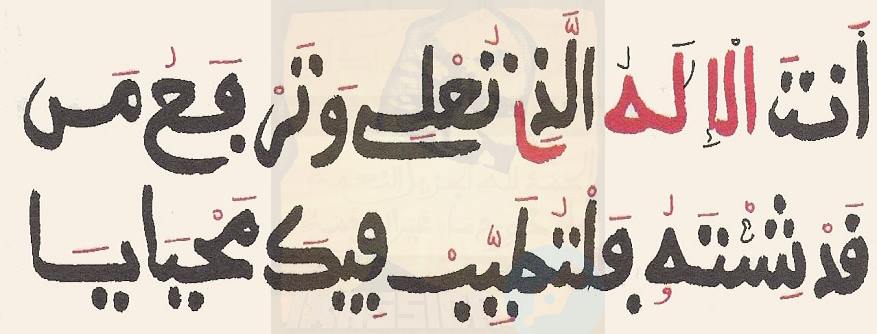 أَنتَ الْإِلَهُ الَّذِي تُعْلِي وَتَرْفَعُ مَن
قَدْ شِئْتَهُ فَلْتُطَيِّبْ فِيكَ مَحْيَايَا